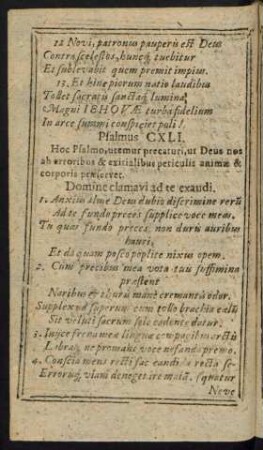 12. Novi, patronus pauperū est Deus
Contra scelestos, huncq́; tuebitur
Et sublevabit quem premit impius.
13. Et hinc piorum natio laudibus
Tollet sacratū sanctaq́; lumina,
Magni IEHOVÆ turba fidelium
In arce summi conspiciet poli!
Psalmus CXLI.
Hoc Psalmo, utemur precaturi, ut Deus nos
ab erroribus & exitialibus periculis animæ &
corporis præservet.
Domine clamavi ad te exaudi.
1. Anxius alme Deus dubio discrimine rerū
Ad te fundo preces supplice voce meas,
Tu quas fundo preces, non duris auribus
hauri,
Et da quam posco poplite nixus opem.
2. Cum precibus mea vota tuis suffimina
præstent
Naribus & thuris manè cremantis odor.
Supplex ad superum cum tollo brachia cælū
Sit veluti sacrum sole cadente datur.
3. Injice frena meæ linguæ compagib
Labra, ne promant voce nefanda
4. Conscia mens recti sac candida recta se-
Erroruq́; viam deneget ire malā. (quatur
Neve